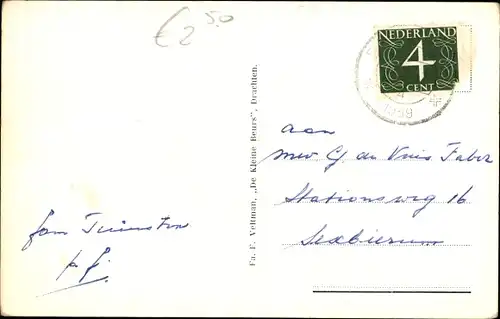 € 2 50
NEDERLAND
4
CENT
1959
Fa. F. Veltman, „De Kleine Beurs", Drachten.
aan
mevr de Vries Faber
Stationsweg 16
Sexbierum
fam
p.f.